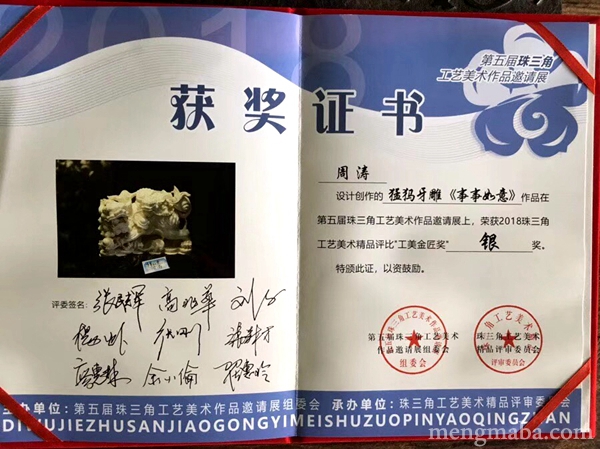 2018
获奖证书
第五届珠三角
工艺美术作品邀请展
周涛
设计创作的 猛犸牙雕《事事如意》作品在
第五届珠三角工艺美术作品邀请展上，荣获2018珠三角
工艺美术精品评比“工美金匠奖” 银 奖。
特颁此证，以资鼓励。
评委签名：
余小倫
第五届珠三角工艺美术
作品邀请展组委会
组委会
珠三角工艺美术
精品评审委员会
评审委员会
主办单位：第五届珠三角工艺美术作品邀请展组委会 承办单位：珠三角工艺美术精品评审委员会
DIWUJIEZHUSANJIAOGONGYIMEISHUZUOPINYAOQINGZHAN
mengmaba.com